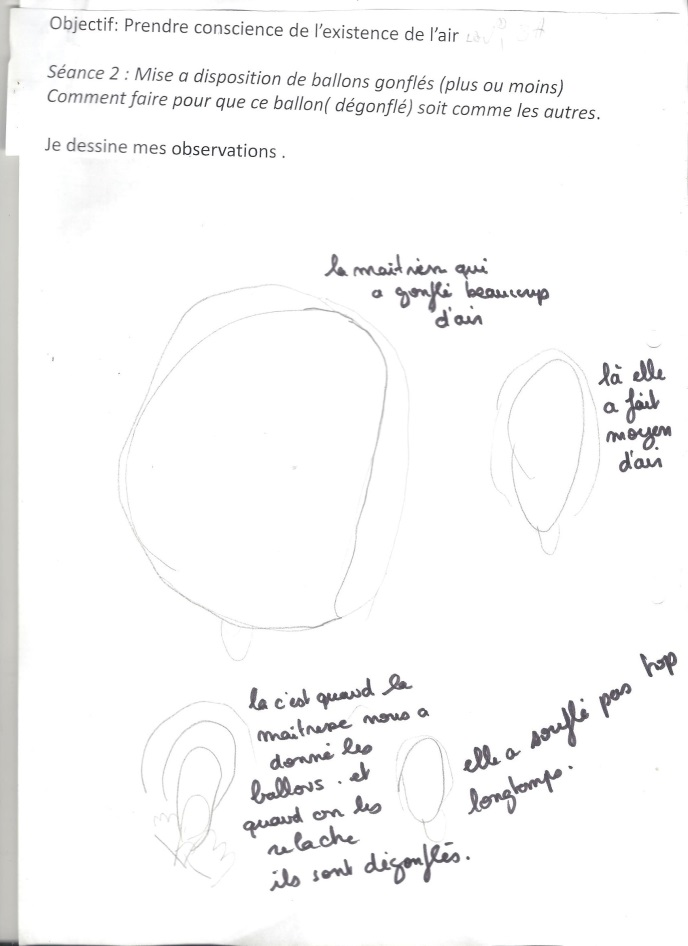 Objectif: Prendre conscience de l'existence de l'air
Séance 2 : Mise a disposition de ballons gonflés (plus ou moins)
Comment faire pour que ce ballon( dégonflé) soit comme les autres.
Je dessine mes observations .
la maitresse qui
a gonflé beaucoup
d'air
là elle
a fait
moyen
d'air
la c'est quand la
maitresse nous a
donné les
ballons. et
quand on les
relache
ils sont dégonflés.
elle a souflé pas trop
longtemps.